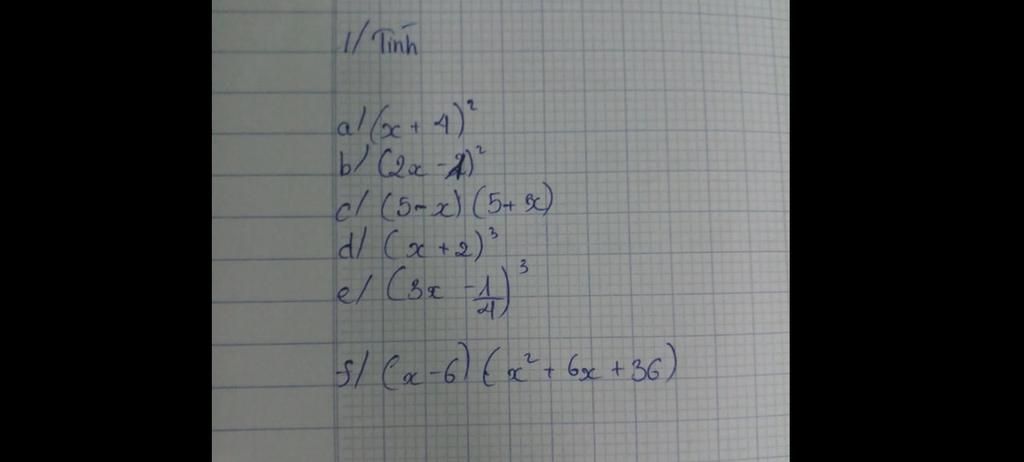 1/ Tính
a/ (x + 4)²
b/ (2x - 1)²
c/ (5 - x) (5 + x)
d/ (x + 2)³
e/ (3x - 1/4)³
f/ (x - 6) (x² + 6x + 36)